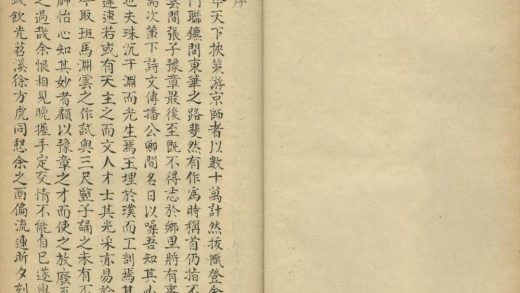 序
今天下挾策游京師者以數十萬計然拔幟登金
門聯鑣問東華之路斐然有作為時稱首仍指不
雲間張子豫章最後至既不得志於鄉里將有事
需次輦下詩文傳播公卿間名日以噪吾知其
也夫珠沉于淵而光生焉玉埋於璞而工訓焉其
遲速若或有天主之而文人才士其光采亦易於
取班馬淵雲之作試與三尺豎子誦之未有不
師怡心知其妙者顧以豫章之才而使之放廢至
之過哉余恨相見晚握手定交情不能自已遂與
錢飲光苕溪徐方虎同憩余之西偏流連昕夕刻